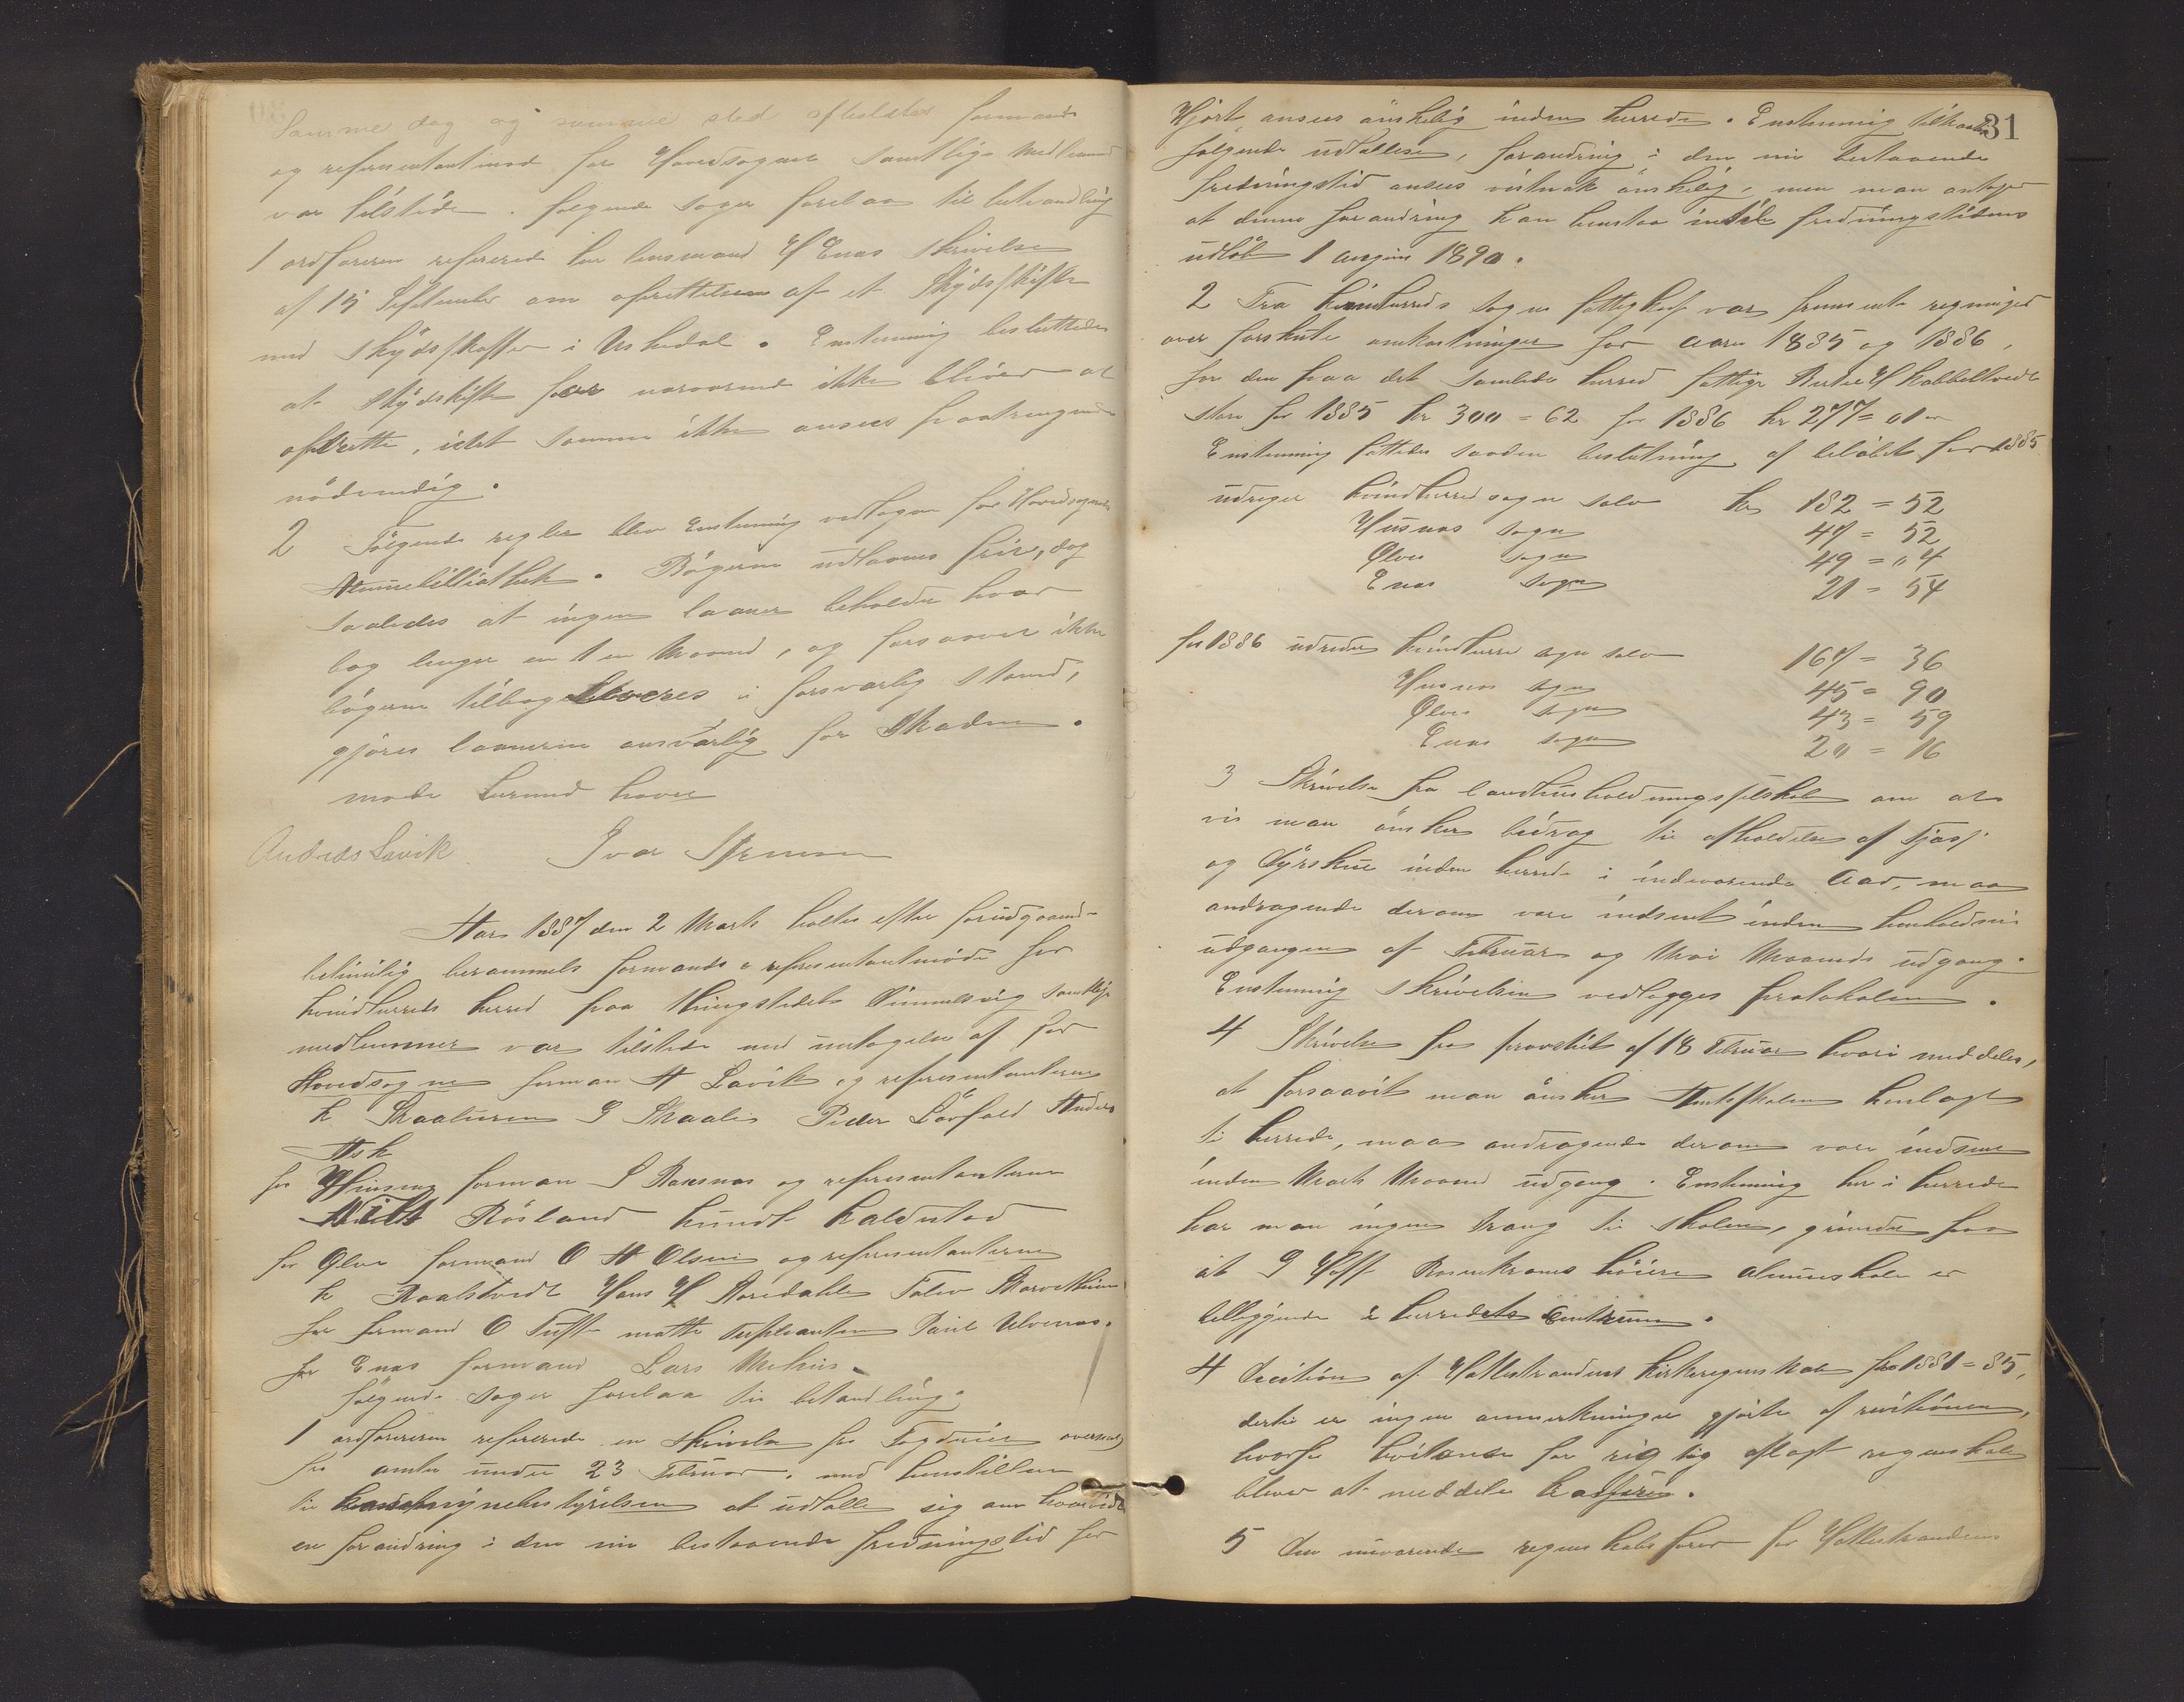 Samme dag og samme sted afholdtes formands
og representantmøde for Hovedsognet samtlige medlemmer
var tilstede. følgende sager forelaa til behandling
1 ordføreren refererede en lensmand H Enæs skrivelse
af 15 September om oprettelsen af et Skydsskifte
med skydsskaffer i Uskedal. Enstemmig besluttedes
at skydskifte for nærværende ikke bliver at
oprette, idet samme ikke ansees paatrængende
nödvendig.
2 Følgende regler blev Enstemmig vedtagen for Hovedsognets
Almuebibliothek. Bögerne udlaanes frit, dog
saaledes at ingen laaner beholder hver
bog lenger en 1 en Maaned, og forsaavet ikke
bögerne tilbageleveres i forsvarlig stand,
gjöres laanerne ansvarlig for Skaden.
mødet dermed hævet
Andreas Lavik Ivar
Aar 1887 den 2 Marts holtes efter forudgaaende
betimelig berammels formands & representantmöde for
Kvindherreds herred paa thingstedet Dimmelsvig samtlige
medlemmer var tilstede med untagelse af for
Hovedsogne forman A Lavik og representanterne
K Skaaluren G Skaale Peder Löfald Anders
Ask
for Husnes forman S Røesnes og representanterne
Nils Røsland Knudt Kaldestad
for Ølve formand O H Olsen og representanterne
K Raalstvedt Hans H Aaredahlen Tolev
for formand O Tufte mötte suppleanten Paul Ulvenes.
for Enæs formand Lars Mehus.
følgende sager forelaa til behandling.
1 ordföreren refererede en skrivelse fra Fogderiet oversendt
fra amtet under 23 Februar. med henstillen
til herredstyrelsen at udtalle sig om hvorvidt
en forandring i den nu bestaaende fredningstid for
31
Hjort ansees ønskelig inden herrede. Enstemmig tilkom
følgende udtallelse, forandring i den nu bestaaende
fredningstid ansees vistnok ønskelig, men man antager
at denne forandring kan henstaa indtil fredningstidens
udlöb 1 august 1890.
2 Fra Kvindherreds sogns fattigkas var fremsente regninger
over forskute omkostninger for Aarene 1885 og 1886,
for den paa det samlede herred fattige Berte H Kabbeltvedt
stor for 1885 kr 300=62 for 1886 kr 277=01 ør
Enstemmig fattedes saaden beslutning af belöbet for 1885
udreger Kvindherred sogn selv kr 182=52
Husnes sogn 47=52
Ølve sogn 49="4
Enæs sogn 21=54
for 1886 udreder Kvindherre sogn selv 167=36
Husnes sogn 45=90
Ølve sogn 43=59
Enæs sogn 20=16
3 Skrivelse fra landhusholdningsselskabet om at
vis man ønsker bidrag til afholdelse af
og Dyrskue inden herrede i indeværende Aar, maa
andragende derom være indsent inden henholdsvis
udgangen af Februar og Mai Maaneds udgang.
Enstemmig skrivelsen vedlegges protokolen.
4 Skrivelse fra provstiet af 18 Februar hvori meddeles,
at forsaavit man ønsker Amtsskolen henlagt
til herrede, maa andragende derom være indsent
inden Marts Maaned udgang. Enstemmig her i herrede
har man ingen trang til skolen, grundet paa
at G Hoff Rosenkrones höiere almueskole er
beliggende i herredets Centrum.
4 Decition af Hattestrandens kirkeregnskab for 1881=85,
dertil er ingen anmerkninger gjorte af revitionen,
hvorfor kvitance for rigtig aflagt regnskab
bliver at meddele kasseren.
5 Den nuværende regnskabsfører for Hattestrandens